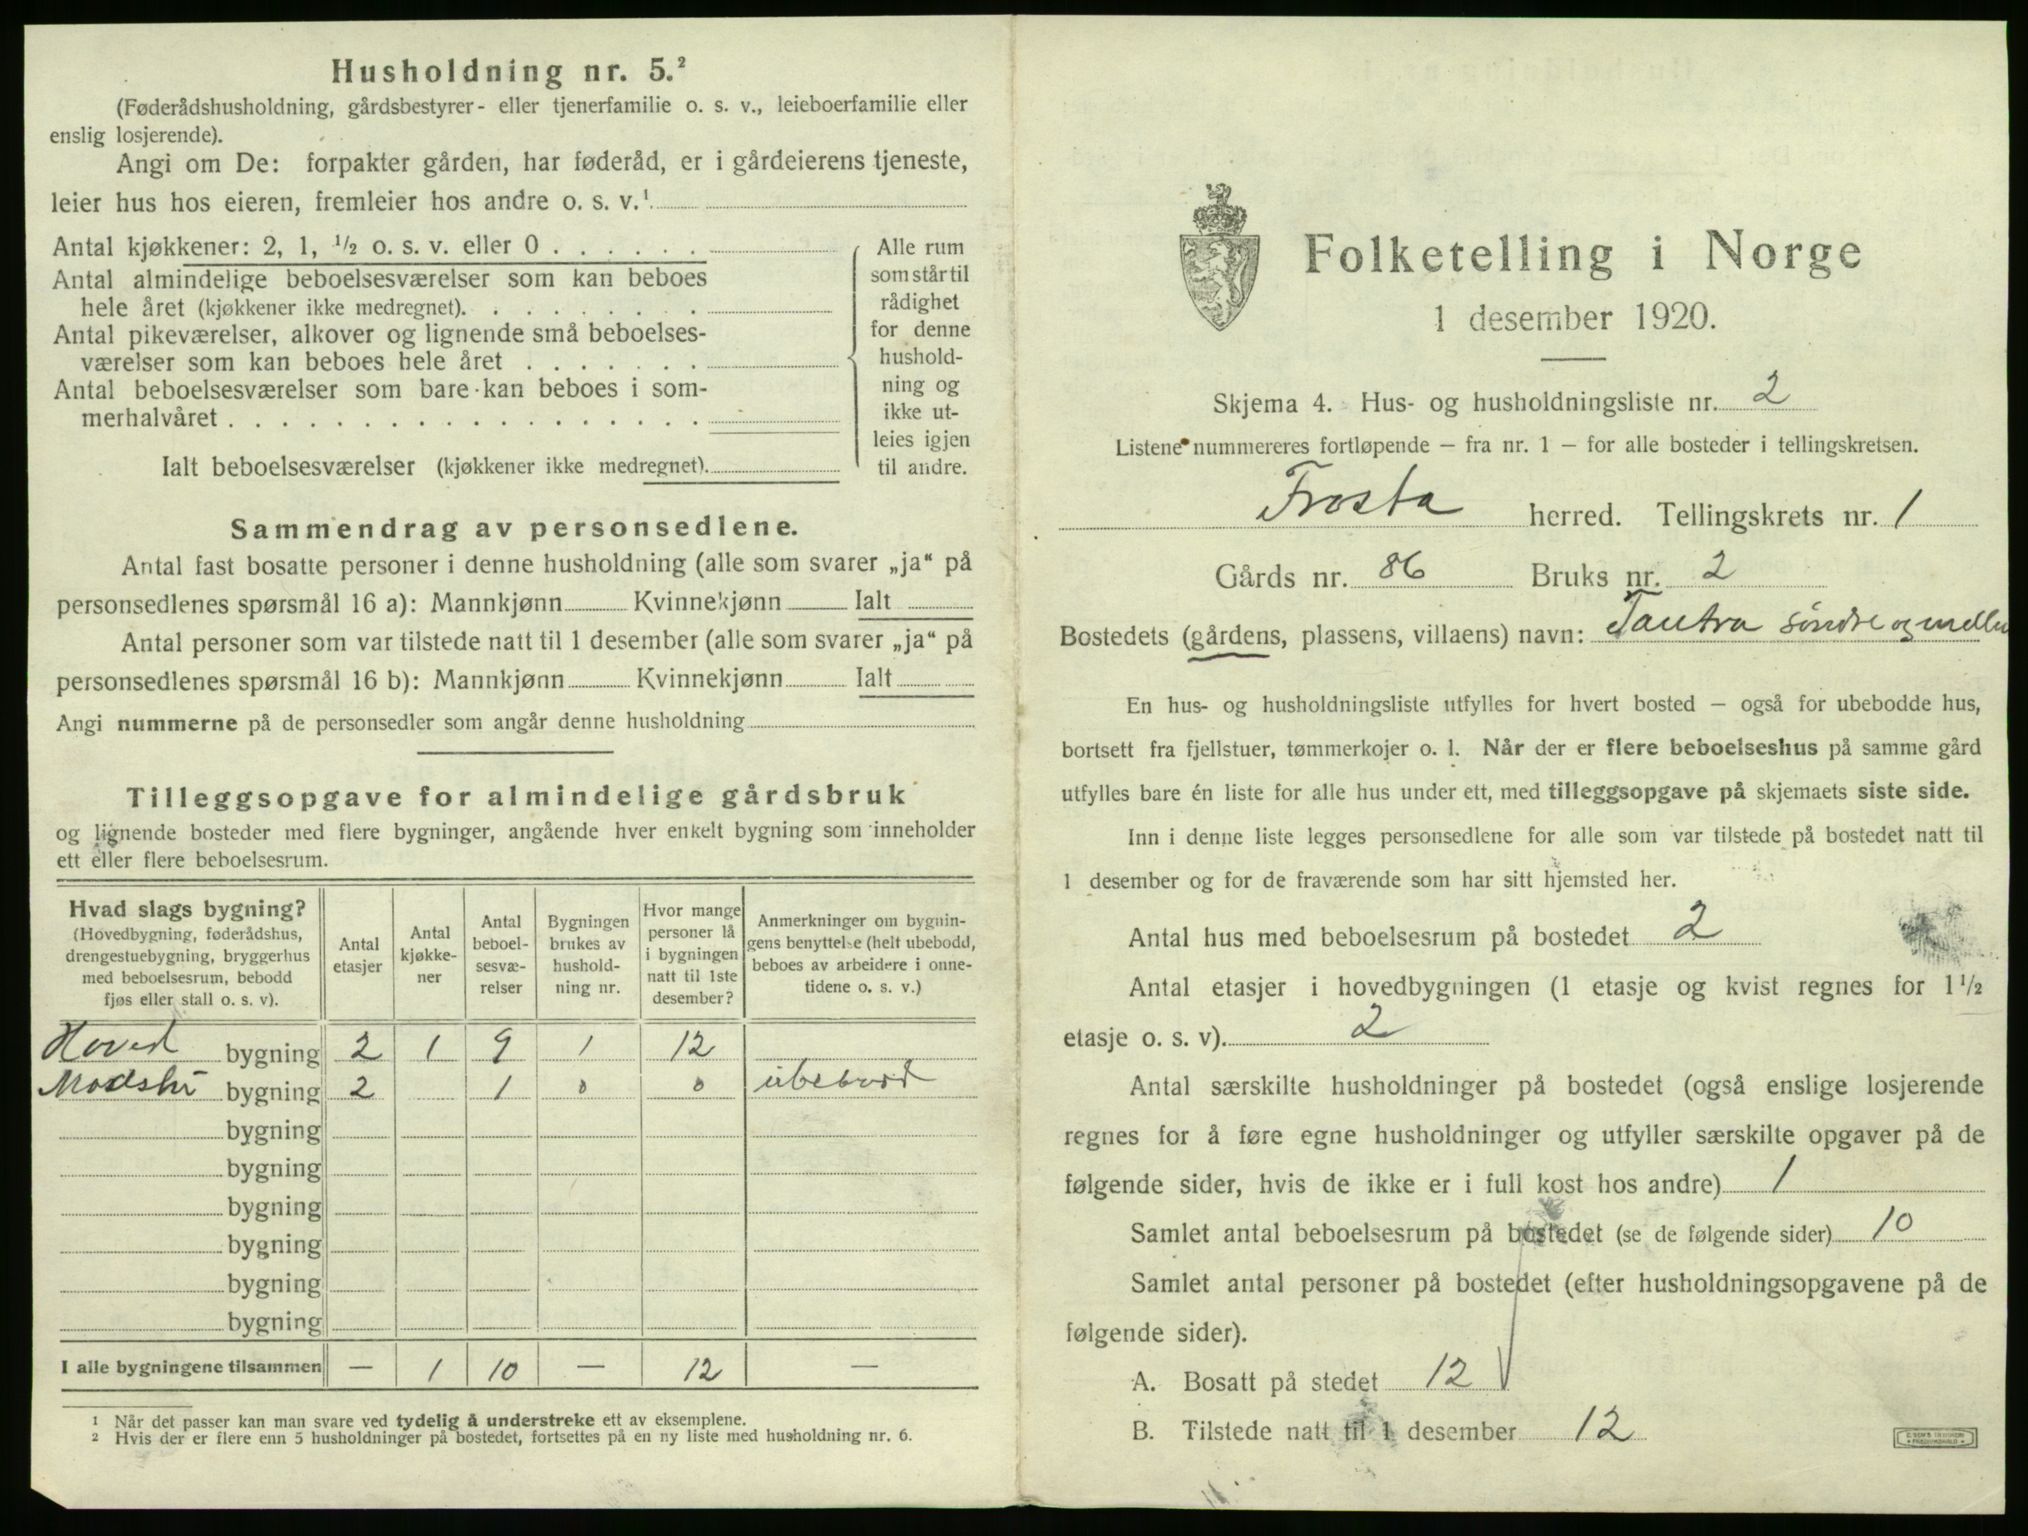 Husholdning nr. 5.²
(Føderådshusholdning, gårdsbestyrer- eller tjenerfamilie o. s. v., leieboerfamilie eller
enslig losjerende).
Angi om De: forpakter gården, har føderåd, er i gårdeierens tjeneste,
leier hus hos eieren, fremleier hos andre o. s. v.¹
Antal kjøkkener: 2, 1, ½ o. s. v. eller 0
Antal almindelige beboelsesværelser som kan beboes
hele året (kjøkkener ikke medregnet).
Antal pikeværelser, alkover og lignende små beboelses-
værelser som kan beboes hele året
Antal beboelsesværelser som bare kan beboes i som-
merhalvåret
Ialt beboelsesværelser (kjøkkener ikke medregnet).
Alle rum
som står til
rådighet
for denne
hushold-
ning og
ikke ut-
leies igjen
til andre.
Sammendrag av personsedlene.
Antal fast bosatte personer i denne husholdning (alle som svarer „ja“ på
personsedlenes spørsmål 16 a): Mannkjønn Kvinnekjønn Ialt
Antal personer som var tilstede natt til 1 desember (alle som svarer „ja“ på
personsedlenes spørsmål 16 b): Mannkjønn Kvinnekjønn Ialt
Angi nummerne på de personsedler som angår denne husholdning
Tilleggsopgave for almindelige gårdsbruk
og lignende bosteder med flere bygninger, angående hver enkelt bygning som inneholder
ett eller flere beboelsesrum.
Hvad slags bygning?
(Hovedbygning, føderådshus,
drengestuebygning, bryggerhus
med beboelsesrum, bebodd
fjøs eller stall o. s. v).
Antal
etasjer
Antal
kjøkke-
ner
Antal
beboel-
sesvæ-
relser
Bygningen
brukes av
hushold-
ning nr.
Hvor mange
personer lå
i bygningen
natt til 1ste
desember?
Anmerkninger om bygnin-
gens benyttelse (helt ubebodd,
beboes av arbeidere i onne-
tidene o. s. v.)
Hoved bygning 2 1 9 1 12
bygning 2 1 0 0 ubebodd
bygning
bygning
bygning
bygning
bygning
bygning
I alle bygningene tilsammen — 1 10 — 12 —
¹ Når det passer kan man svare ved tydelig å understreke ett av eksemplene.
² Hvis der er flere enn 5 husholdninger på bostedet, fortsettes på en ny liste med husholdning nr. 6.
Folketelling i Norge
1 desember 1920.
Skjema 4. Hus- og husholdningsliste nr. 2
Listene nummereres fortløpende – fra nr. 1 – for alle bosteder i tellingskretsen.
Frosta herred. Tellingskrets nr. 1
Gårds nr. 86 Bruks nr. 2
Bostedets (gårdens, plassens, villaens) navn: Tautra søndre og mellem
En hus- og husholdningsliste utfylles for hvert bosted – også for ubebodde hus,
bortsett fra fjellstuer, tømmerkojer o. l. Når der er flere beboelseshus på samme gård
utfylles bare én liste for alle hus under ett, med tilleggsopgave på skjemaets siste side.
Inn i denne liste legges personsedlene for alle som var tilstede på bostedet natt til
1 desember og for de fraværende som har sitt hjemsted her.
Antal hus med beboelsesrum på bostedet 2
Antal etasjer i hovedbygningen (1 etasje og kvist regnes for 1½
etasje o. s. v). 2
Antal særskilte husholdninger på bostedet (også enslige losjerende
regnes for å føre egne husholdninger og utfyller særskilte opgaver på de
følgende sider, hvis de ikke er i full kost hos andre) 1
Samlet antal beboelsesrum på bostedet (se de følgende sider) 10
Samlet antal personer på bostedet (efter husholdningsopgavene på de
følgende sider).
A. Bosatt på stedet 12
B. Tilstede natt til 1 desember 12